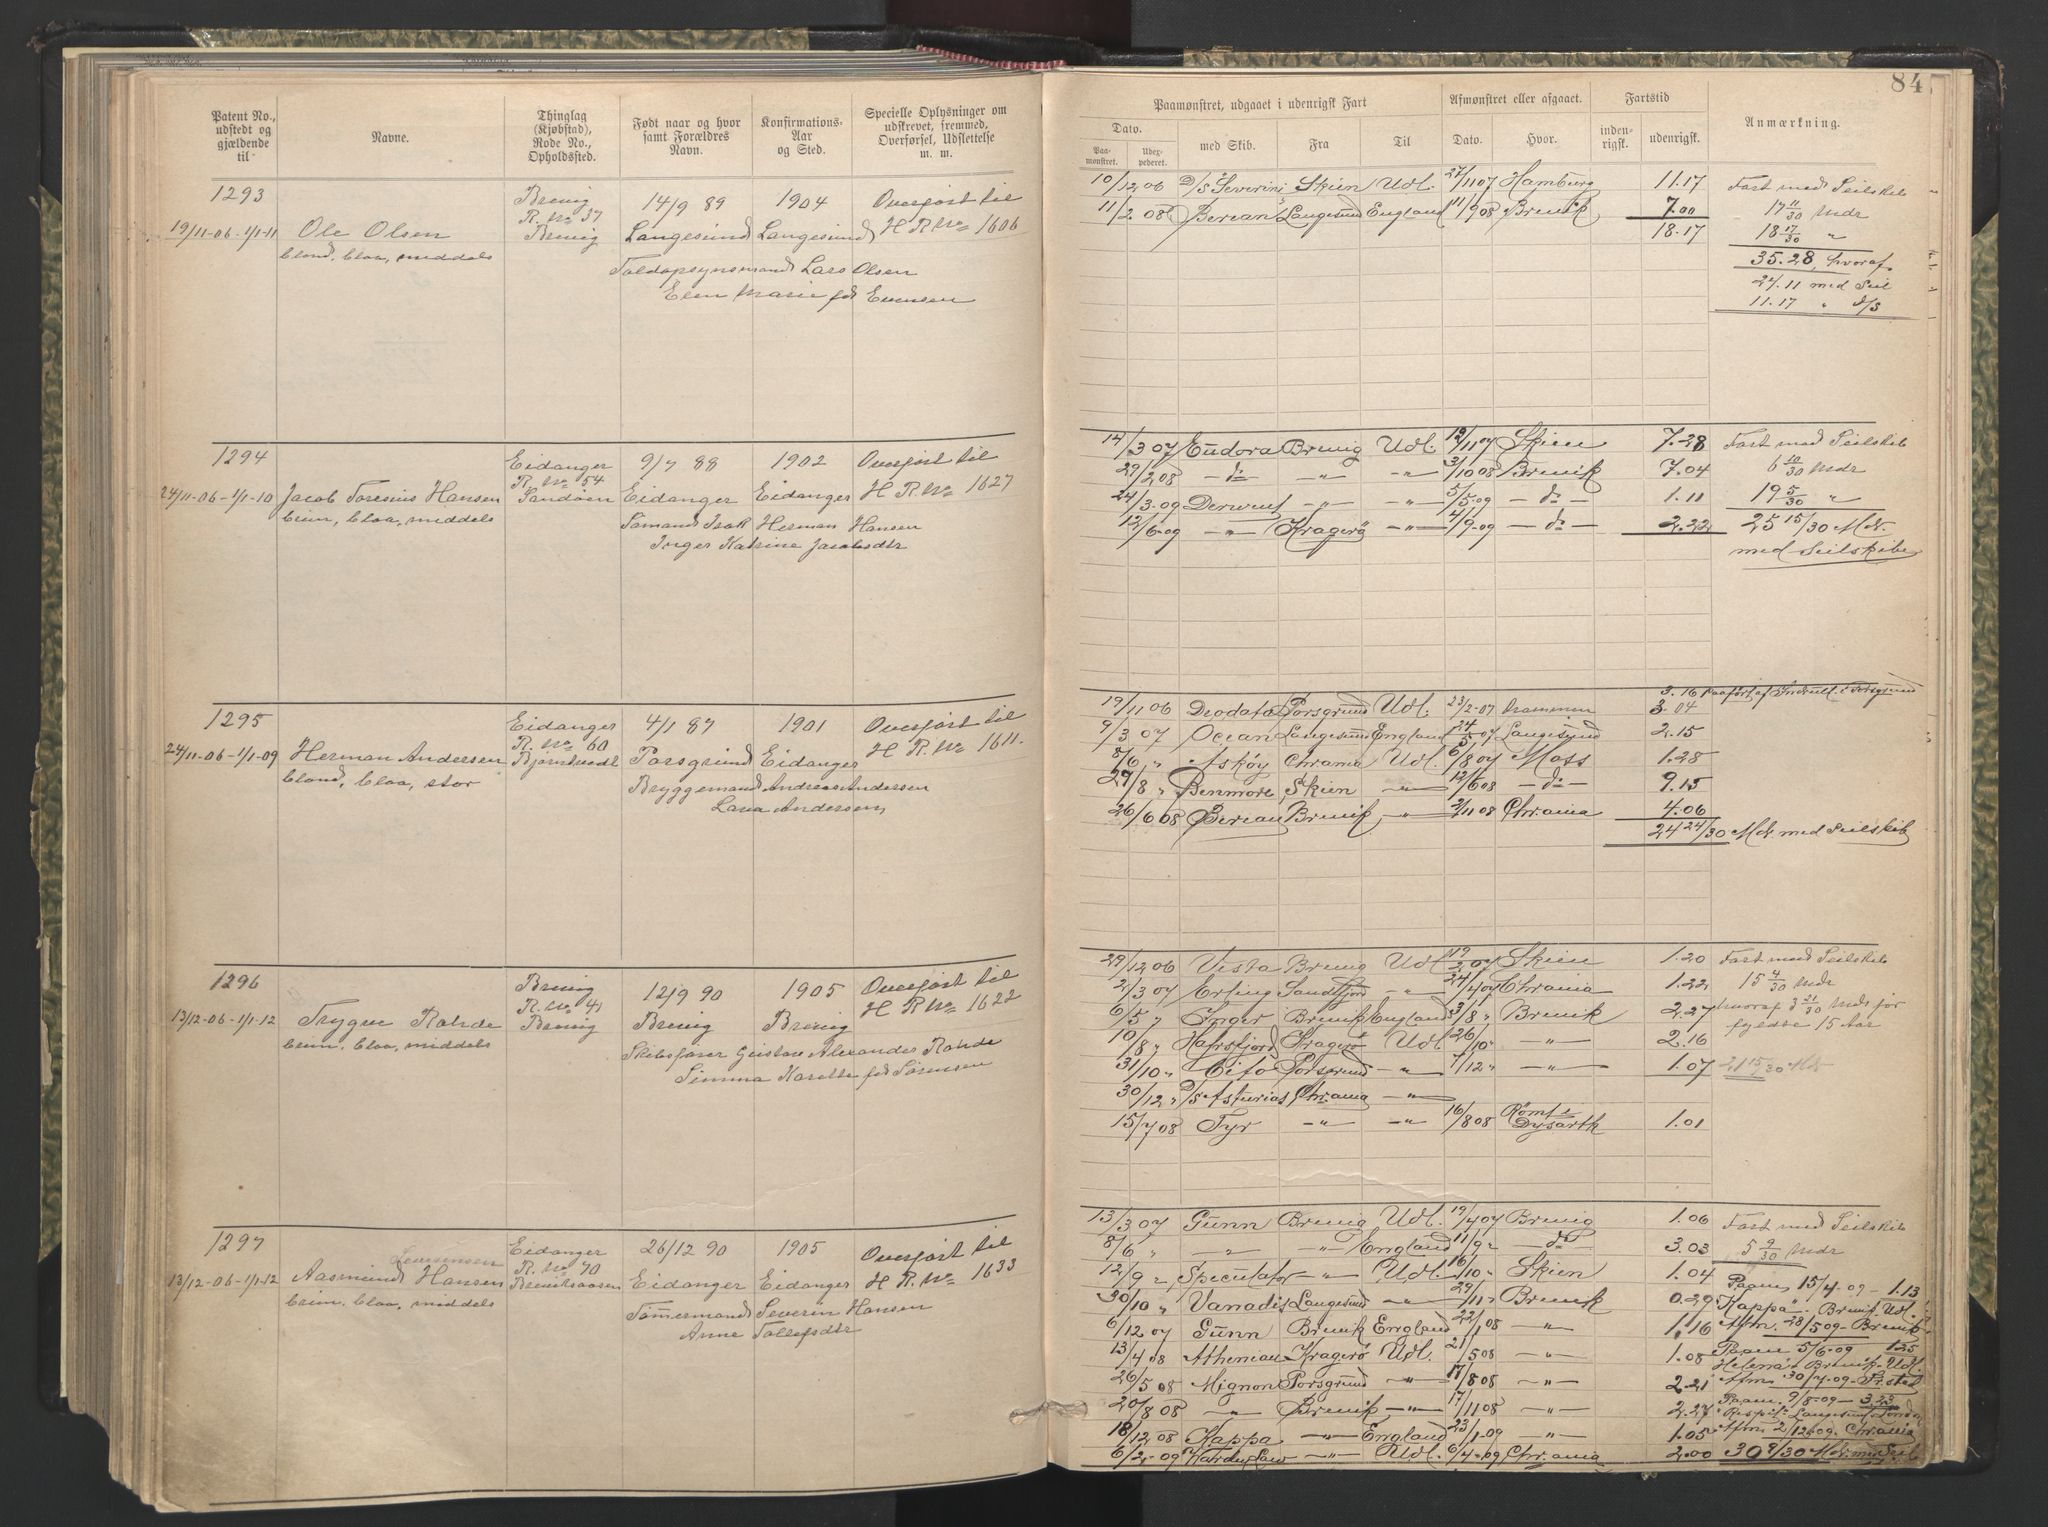 84
Patent No., udstedt og gjældende til
Navne.
Thinglag (Kjøbstad), Rode No., Opholdssted.
Født naar og hvor samt Forældres Navn.
Konfirmations- Aar og Sted.
Specielle Oplysninger om udskrevet, fremmed, Overførsel, Udslettelse m. m.
Paamønstret, udgaaet i udenrigsk Fart
Afmønstret eller afgaaet.
Fartstid
Anmærkning.
Dato.
Paa- mønstret.
Udex- pederet.
med Skib.
Fra
Til
Dato.
Hvor.
inden- rigsk.
udenrigsk.
1293
19/11-06-1/1-11
Ole Olsen
blond, blaa, middels
Brevig
R. No 37
Brevig
14/9 89
Langesund
1904
Langesund
Overført til
H R. No 1606
Toldopsynsmand Lars Olsen
Elen Marie fød Evensen
10/12 06 D/S Severin Skien Udl. 27/11 07 Hamburg 11.17
11/2 08 Berean Langesund England 11/9 08 Brevik 7.00
18.17
Fart med Seilskib
17 11/30 Mdr
18 17/30 "
35.28, hvoraf
24.11 med Seil
11.17 " d/s
1294
24/11-06-1/1-10
Jacob Toresius Hansen
brun, blaa, middels
Eidanger
R. No 54
Sandøen
9/7 88
Eidanger
1902
Eidanger
Overført til
H R. No 1627
Sømand Isak Herman Hansen
Inger Katrine Jacobsdtr
14/3 07 Eudora Brevig Udl. 12/11 07 Skien 7.28
29/2 08 - do - " " 3/10 08 Brevik 7.04
24/3-09 Derwent " " 5/5-09 - do - 1.11
12/6-09 " Kragerø " 4/9-09 - do - 2.22
Fart med Seilskib
6 10/30 Mdr
19 5/30 "
25 15/30 Mdr.
med Seilskibe
1295
24/11-06-1/1-09
Herman Andersen
blond, blaa, stor
Eidanger
R. No 60
Bjørntvedt
4/1 87
Porsgrund
1901
Eidanger
Overført til
H R. No 1611.
Bryggemand Andreas Andersen
Lava Andersen
3.16 paaført af Indrull. i Porsgrund
19/11 06 Deodata Porsgrund Udl. 23/2-07 Drammen 3.04
9/3 07 Ocean Langesund England 24/5 07 Langesund 2.15
8/6 " Askøy Chrania Udl. 6/8 07 Moss 1.28
27/8 " Benmore Skien " 12/6 08 - do - 9.15
26/6 08 Berean Brevik " 2/11 08 Chrania 4.06
24 24/30 Mdr. med Seilskib
1296
13/12-06-1/1-12
Trygve Rohde
brun, blaa, middels
Brevig
R. No 41
Brevig
12/9 90
Brevig
1905
Brevig
Overført til
H R. No 1622
Skibsfører Gustav Alexander Rohde
Simma Karelia fød Sørensen
29/12 06 Vesta Brevig Udl. 19/2 07 Skien 1.20
2/3 07 Erling Sandefjord " 24/4 07 Chrania 1.22
6/5 " Inger Brevik England 3/8 " Brevik 2.27
10/8 " Hafrsfjord Kragerø Udl 26/10 " " 2.16
31/10 " Cito Porsgrund " 7/12 " " 1.07
30/12 " D/S Asturias Chrania "
15/7 08 Tyr " " 16/8 08 Rømt i Dysarth 1.01
Fart med Seilskib
15 4/30 Mdr
hvoraf 3 21/30 Mdr før
fyldte 15 Aar
21 15/30 Mdr
1297
13/12-06-1/1-12
Aasmund Hansen
brun, blaa, middels
Eidanger
R. No 70
Brevikaasen
26/12 90
Eidanger
1905
Eidanger
Overført til
H R. No 1633
Tømmermand Severin Hansen
Anne Tollefsdtr
13/3 07 Gunn Brevig Udl. 19/4 07 Brevig 1.06
8/6 " " " England 11/9 " - do - 3.03
12/9 " Speculator " Udl. 16/10 " Skien 1.04
30/10 " Vanadis Langesund " 29/11 " Brevik 0.29
6/12 07 Gunn Brevik England 22/1 08 " 1.16
13/4 08 Athenian Kragerø Udl. 21/5 08 " 1.08
26/5 08 Mignon Porsgrund " 17/8 08 " 2.21
20/8 08 " Brevik " 17/11 08 " 2.27
18/12 08 Kappa " England 23/1-09 " 1.05
6/2-09 " Udl. 6/4-09 Chrania 2.00
Fart med Seilskib
5 9/30 Mdr
Paam. 15/4-09 - 1.13
"Kappa" Brevik Udl.
Afm. 28/5 09 - Brevik
Paam 5/6-09 1.25
Helena - Brevik - Udl.
Afm 30/7-09 - Fr.stad
Paam. 9/8-09 - 3.23
Langesund London
Afm 2/12-09 Chrania
30 8/30 Mdr. med Seil